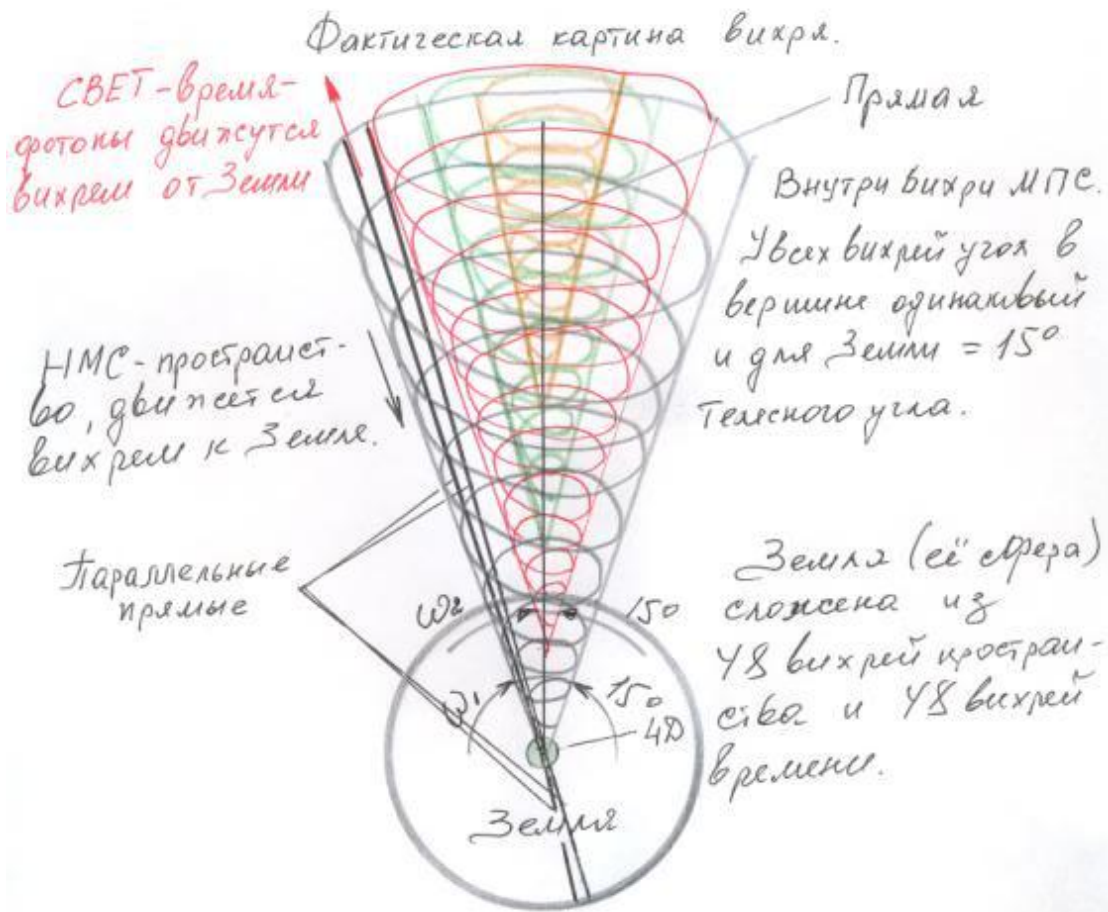 Фактическая картина вихря.
СВЕТ-время-
фотоны движутся
вихрем от Земли
Прямая
Внутри вихри МПС.
У всех вихрей угол в
вершине одинаковый
и для Земли = 15°
телесного угла.
НМС-пространст-
во, движется
вихрем к Земле.
Параллельные
прямые
Земля (её сфера)
сложена из
48 вихрей простран-
ства и 48 вихрей
времени.
ω2
15°
ω1
15°
4D
Земля